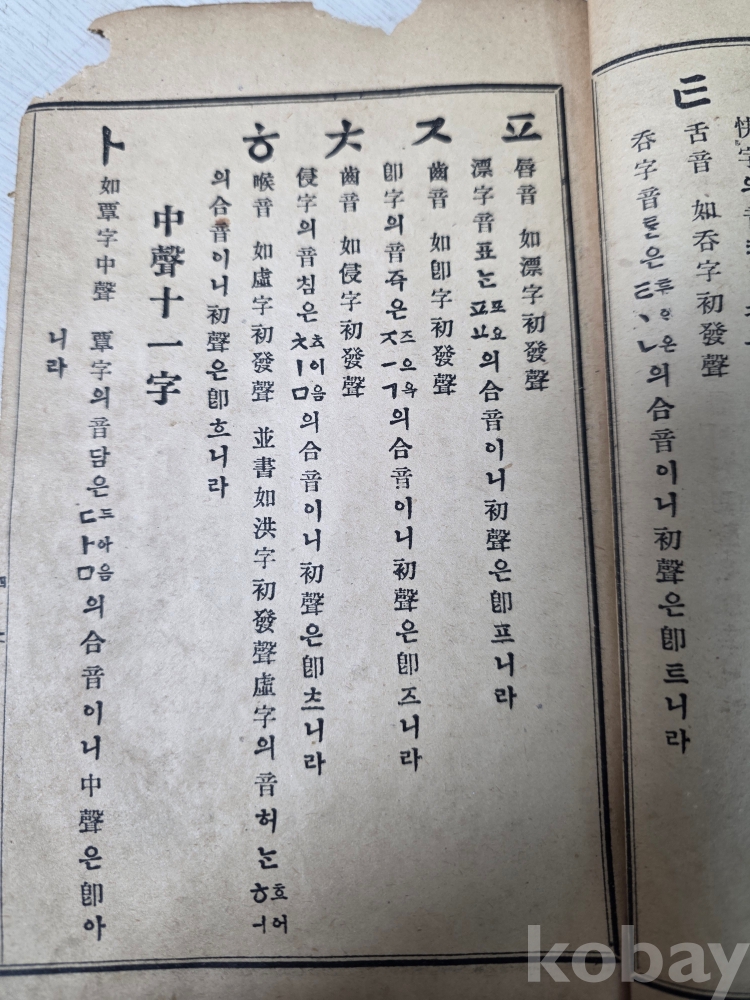 快字의音
ㅌ 舌音 如呑字初發聲
呑字音튼은ㅌㆍㄴ의合音이니初聲은卽트니라
ㅍ 唇音 如漂字初發聲
漂字音표는ㅍㅛ프요의合音이니初聲은卽프니라
ㅈ 齒音 如卽字初發聲
卽字의音즉은ㅈㅡㄱ즈으윽의合音이니初聲은卽즈니라
ㅊ 齒音 如侵字初發聲
侵字의音침은ㅊㅣㅁ츠이음의合音이니初聲은卽츠니라
ㅎ 喉音 如虛字初發聲 並書如洪字初發聲虛字의音허는ㅎㅓ흐어
의合音이니初聲은卽흐니라
中聲十一字
ㅏ 如覃字中聲 覃字의音담은ㄷㅏㅁ드아음의合音이니中聲은卽아
니라
四
kobay